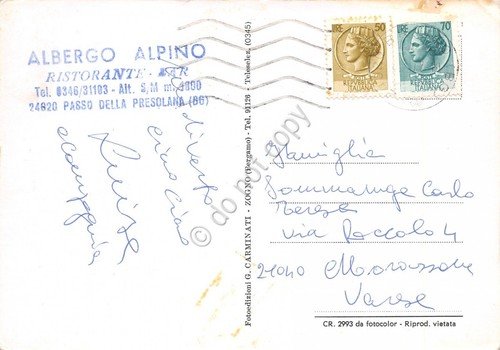 ALBERGO ALPINO
RISTORANTE - BAR
Tel. 0346/31103 - Alt. S.M m. 1300
24020 PASSO DELLA PRESOLANA (BG)
diverto
ciao ciao
Luisa
e compagnia
Fotoedizioni G. CARMINATI - ZOGNO (Bergamo) - Tel. 91126 - Teleselez. (0345)
do not copy
LIRE 50
ITALIANA
LIRE 70
ITALIANA
Famiglia
Sommaruga Carlo
Teresa
Via Roccolo 4
21040 Morazzone
Varese
CR. 2993 da fotocolor - Riprod. vietata